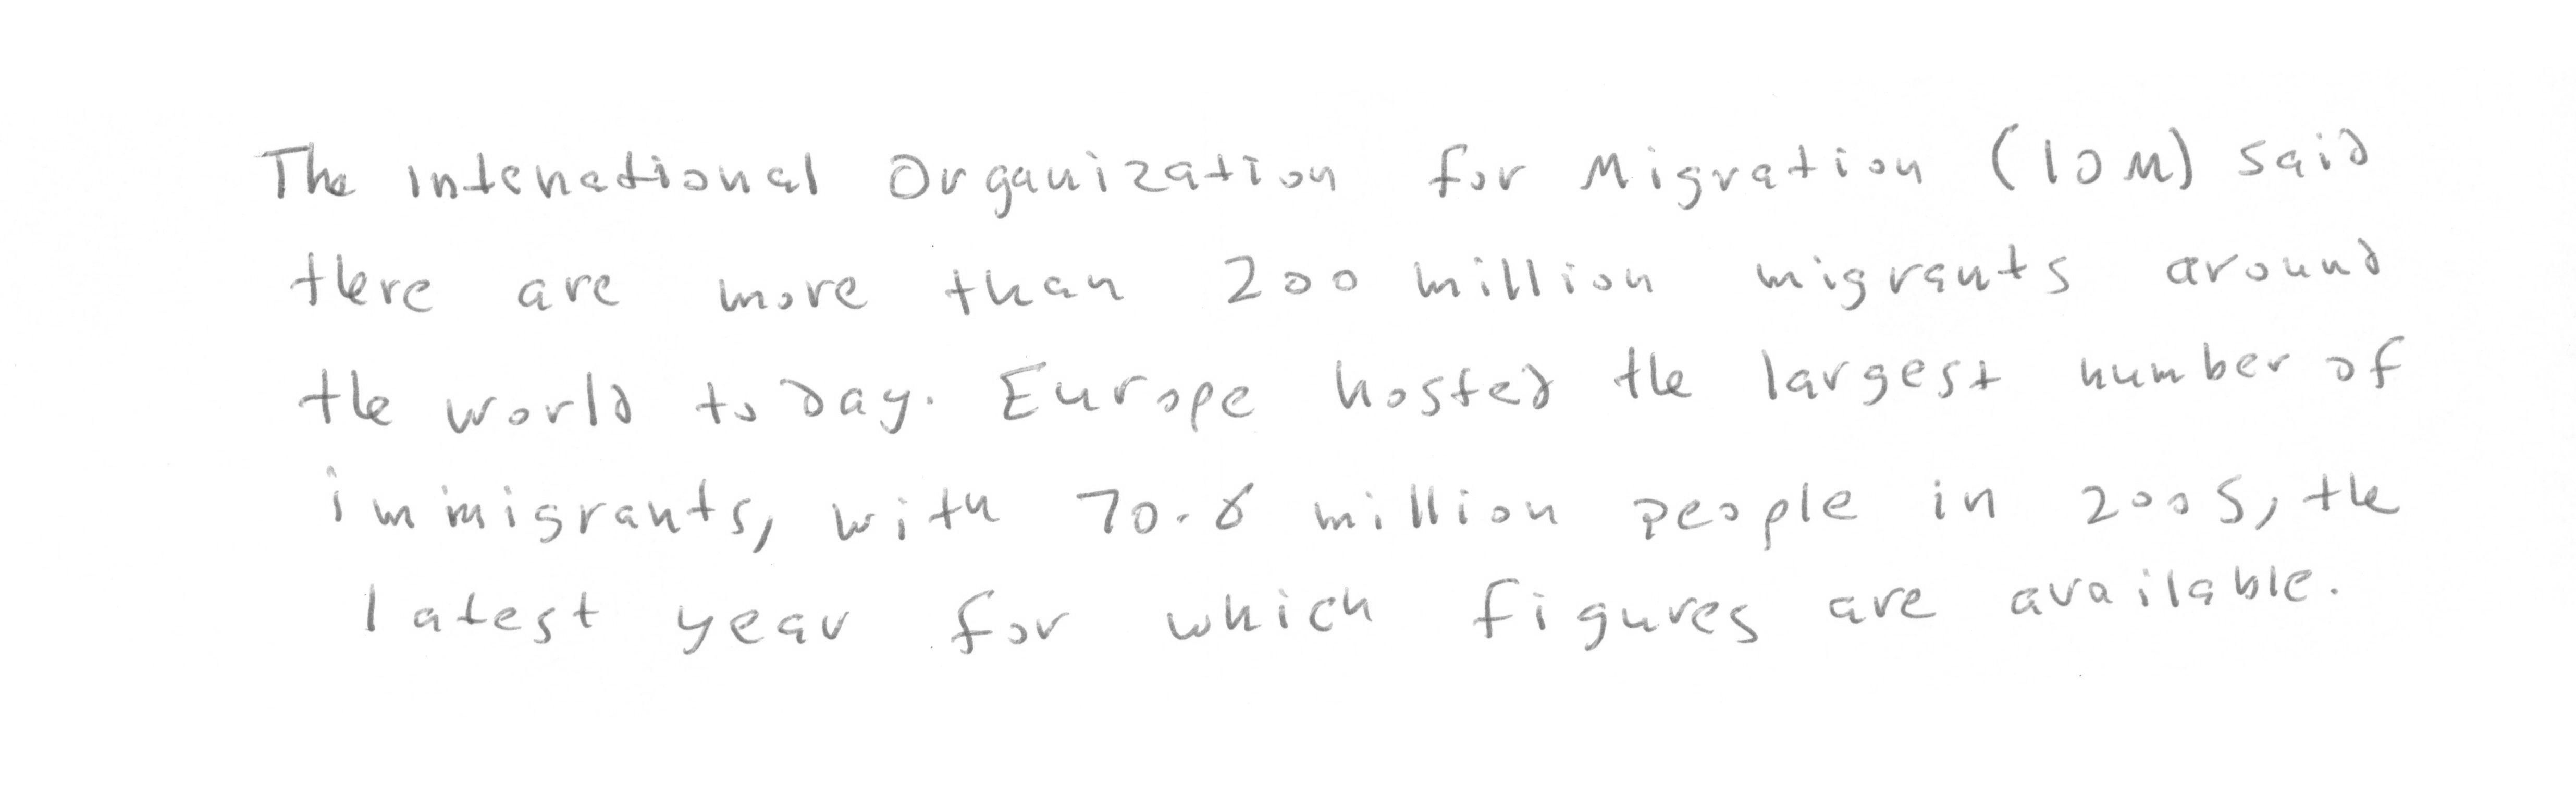 The intenational Organization for Migration (IOM) said
there are more than 200 million migrants around
the world today. Europe hosted the largest number of
immigrants, with 70.6 million people in 2005, the
latest year for which figures are available.